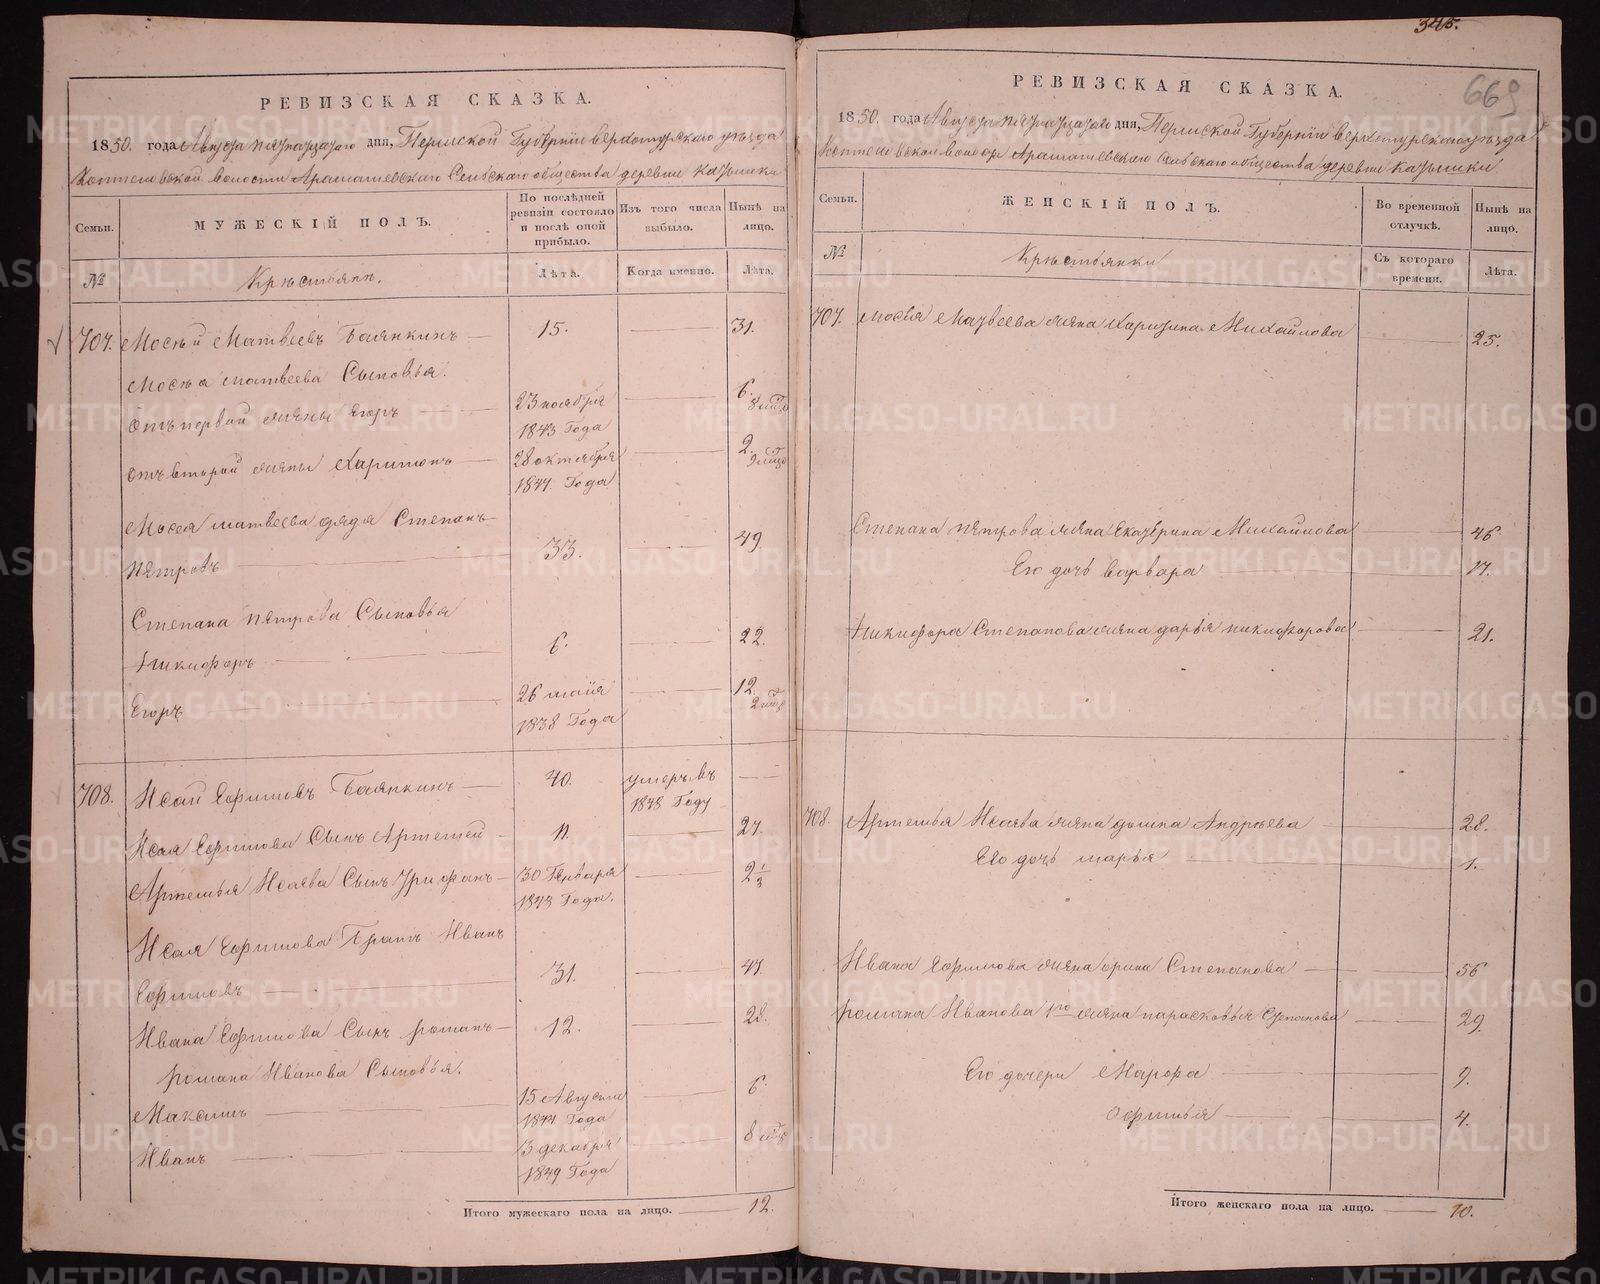 РЕВИЗСКАЯ СКАЗКА.
1850. года Августа пятнадцатаго дня, Пермской Губерніи верхотурскаго уѣзда
Коптеловской волости Арамашевскаго Сельскаго общества деревни
Семьи.
МУЖЕСКІЙ ПОЛЪ.
По послѣдней ревизіи состояло и послѣ оной прибыло.
Изъ того числа выбыло.
Нынѣ на лицо.
№
Крѣстьянъ.
Лѣта.
Когда именно.
Лѣта.
707. Мосѣй Матвеевъ 15. 31.
Мосѣа матвеева Сыновья.
отъ первой жены Егоръ 23 ноября 1843 Года 6. 8
отъ второй жены Харитонъ 28 октября 1847 Года 2. 9
Мосея матвеева дядя Степанъ
пѣтровъ 33. 49.
Степана пѣтрова Сыновья
Никифоръ 6. 22.
Егоръ 26 майя 1838 Года 12. 2
708. Исай Ефимовъ 40. умеръ въ 1848 Году
Исая Ефимова Сынъ Артемей 11. 27.
Артемья Исаева Сынъ 30 Генваря 1848 Года. 2 1/3
Исая Ефимова Братъ Иванъ
Ефимовъ 31. 47.
Ивана Ефимова Сынъ романъ 12. 28.
романа Иванова Сыновья.
Максимъ 15 Августа 1844 Года 6.
Иванъ 3 декабря 1849 Года 8
Итого мужескаго пола на лицо. 12.
345.
669
РЕВИЗСКАЯ СКАЗКА.
1850. года Августа пятнадцатаго дня, Пермской Губерніи верхотурскаго уѣзда
Коптеловской волости Арамашевскаго Сельскаго общества деревни
Семьи.
ЖЕНСКІЙ ПОЛЪ.
Во временной отлучкѣ.
Нынѣ на лицо.
№
Крѣстьянки
Съ котораго времени.
Лѣта.
707. Мосея Матвеева жена Михайлова 25.
Степана пѣтрова жена Екатерина Михайлова 46.
Его дочь варвара 17.
Никифора Степанова жена дарья никифорова 21.
708. Артемья Исаева жена домна Андрѣева 28.
Его дочь марья 1.
Ивана Ефимова жена орина Степанова 56
романа Иванова жена парасковья Степанова 29
Его дочери Марфа 9.
Офимья 4.
Итого женскаго пола на лицо. 10.
METRIKI.GASO-URAL.RU